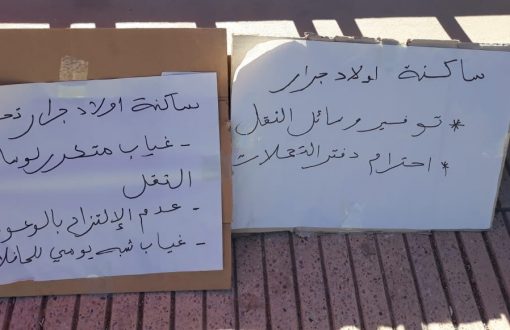 ساكنة اولاد جرار
* توفير وسائل النقل
* احترام دفتر التحملات
ساكنة اولاد جرار
- غياب متكرر لوسا
النقل
- عدم الإلتزام بالوعو
- غياب شبه يومي للحافلا